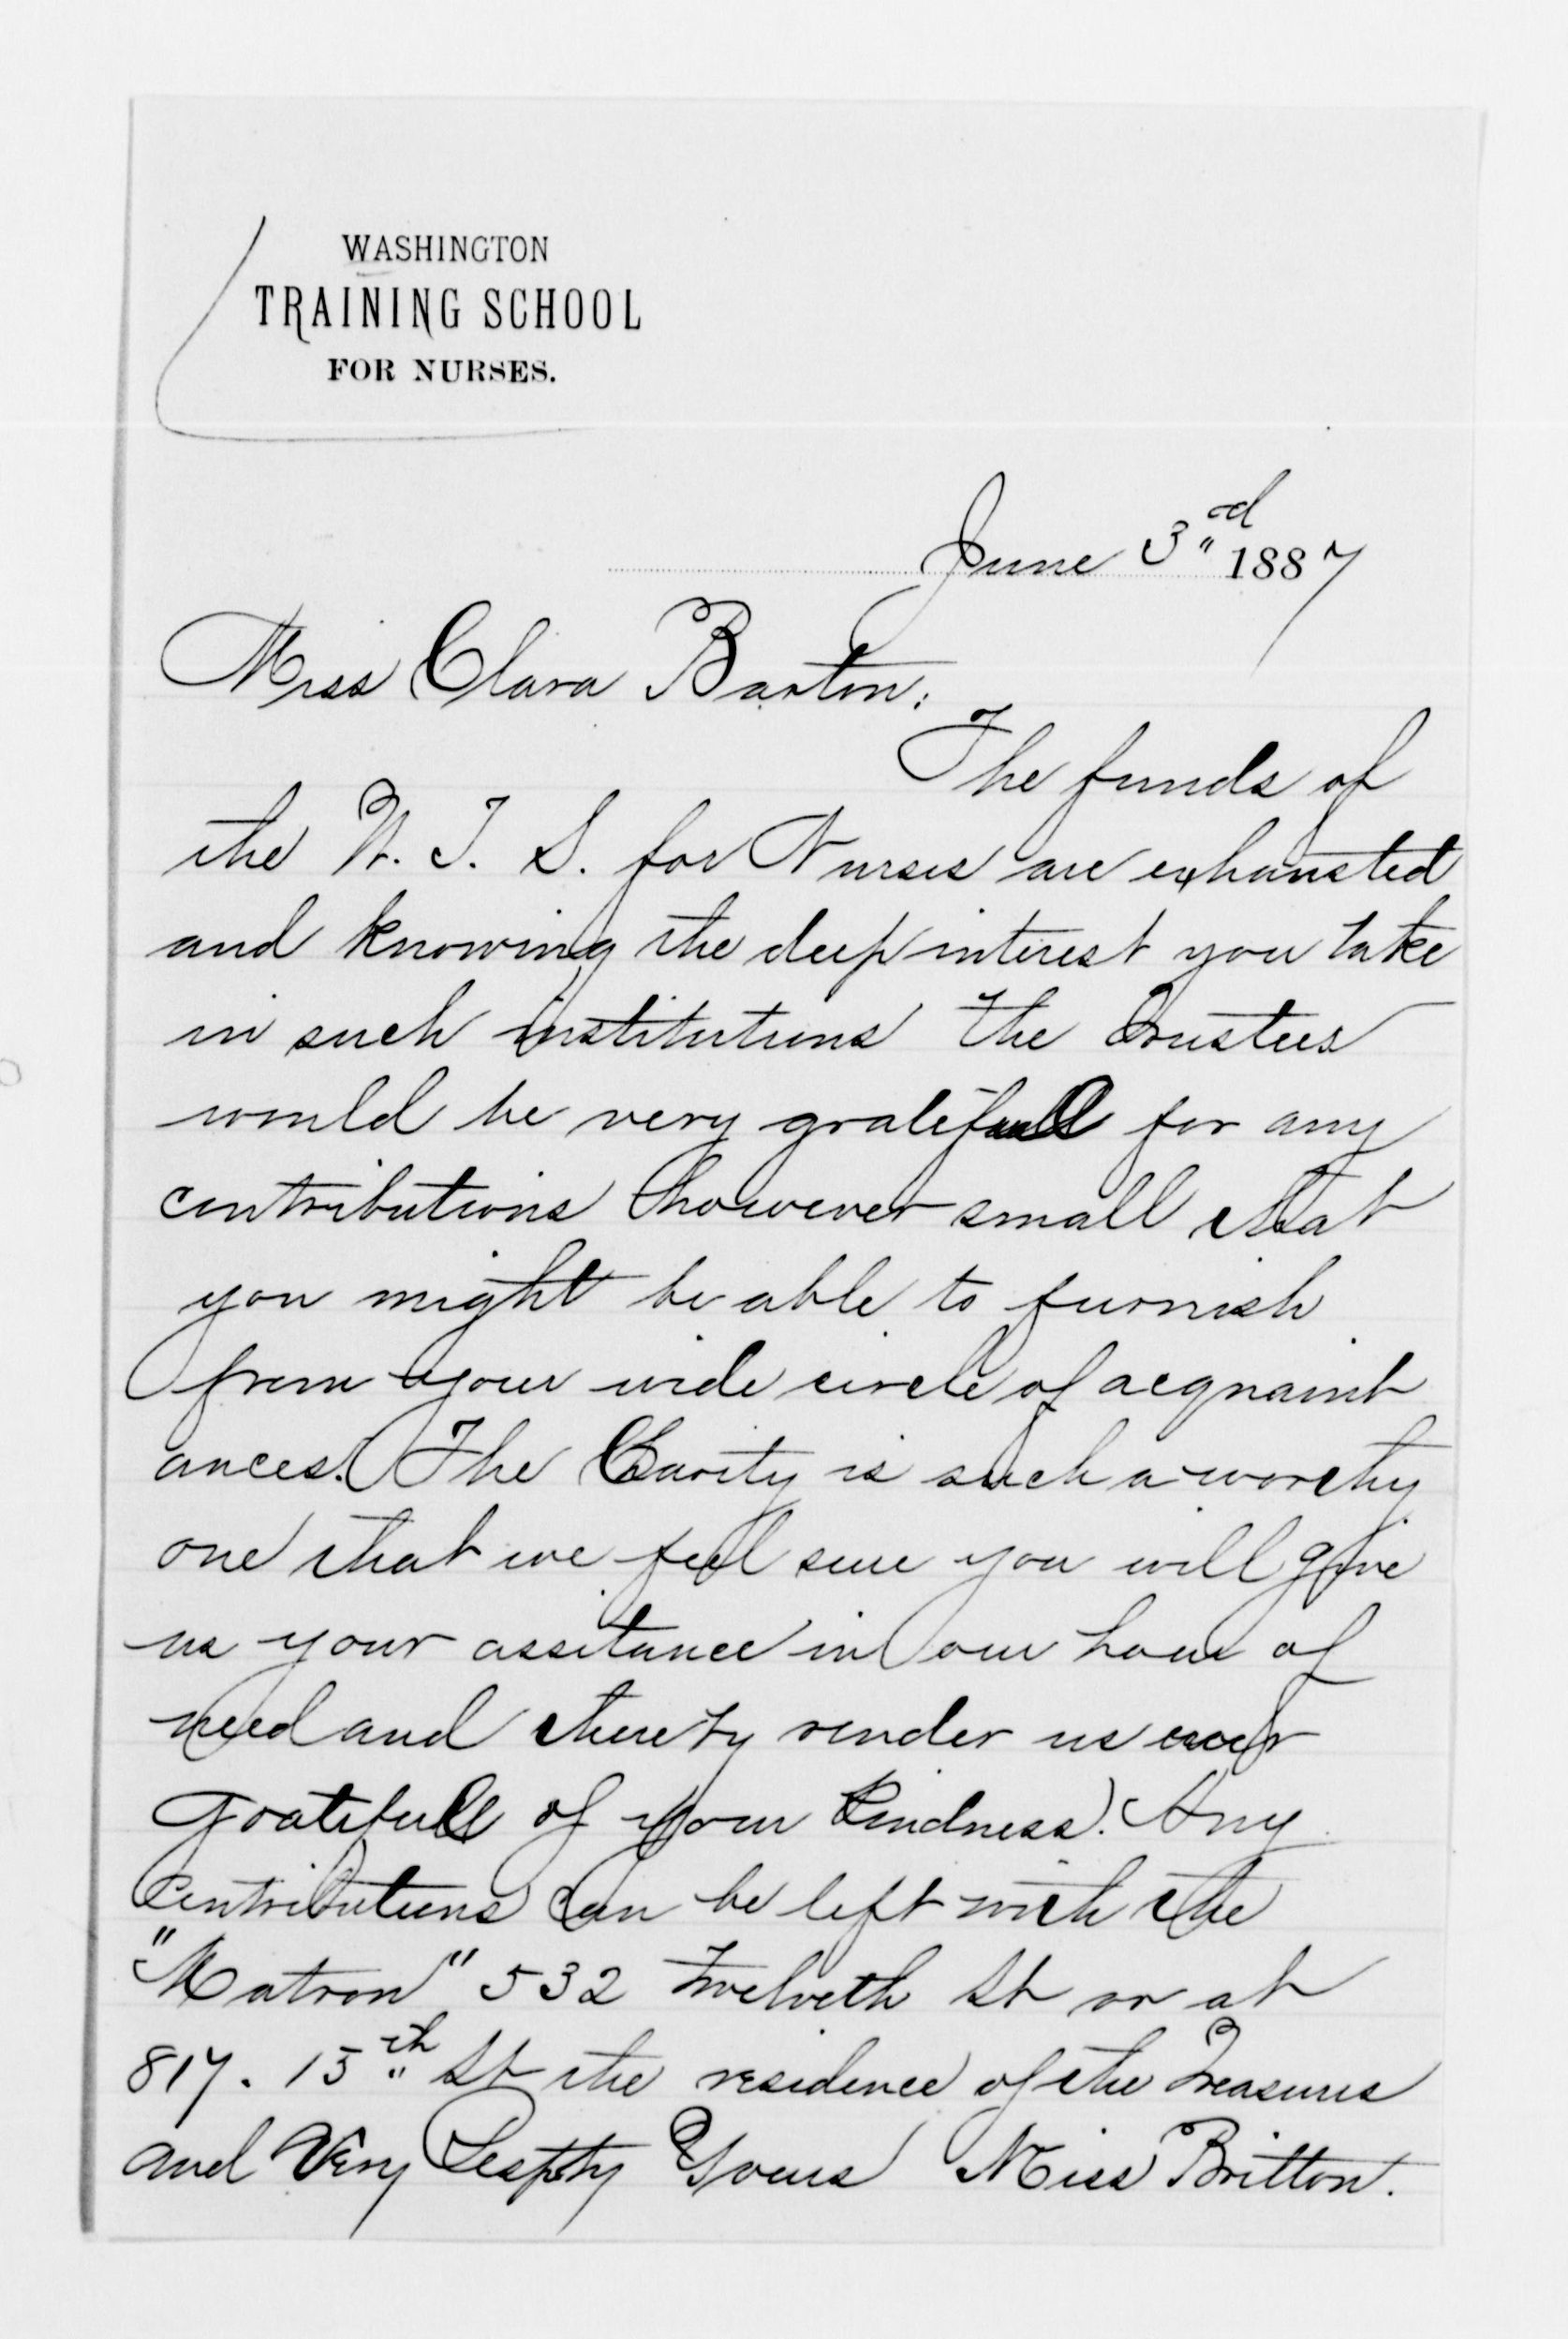 WASHINGTON
TRAINING SCHOOL
FOR NURSES.
June 3rd 1887
Miss Clara Barton:
The funds of
the W. T. S. for Nurses are exhausted
and knowing the deep interest you take
in such institutions the Trustees
would be very gratefull for any
contributions however small that
you might be able to furnish
from your wide circle of acquaint
ances. The Charity is such a worthy
one that we feel sure you will give
us your assitance in our hour of
need and thereby render us ever
gratefull of your kindness. Any
Contributions can be left with the
"Matron" 532 Twelveth St or at
817. 15th St the residence of the Treasures
and Very Respty Yours Miss Britton.